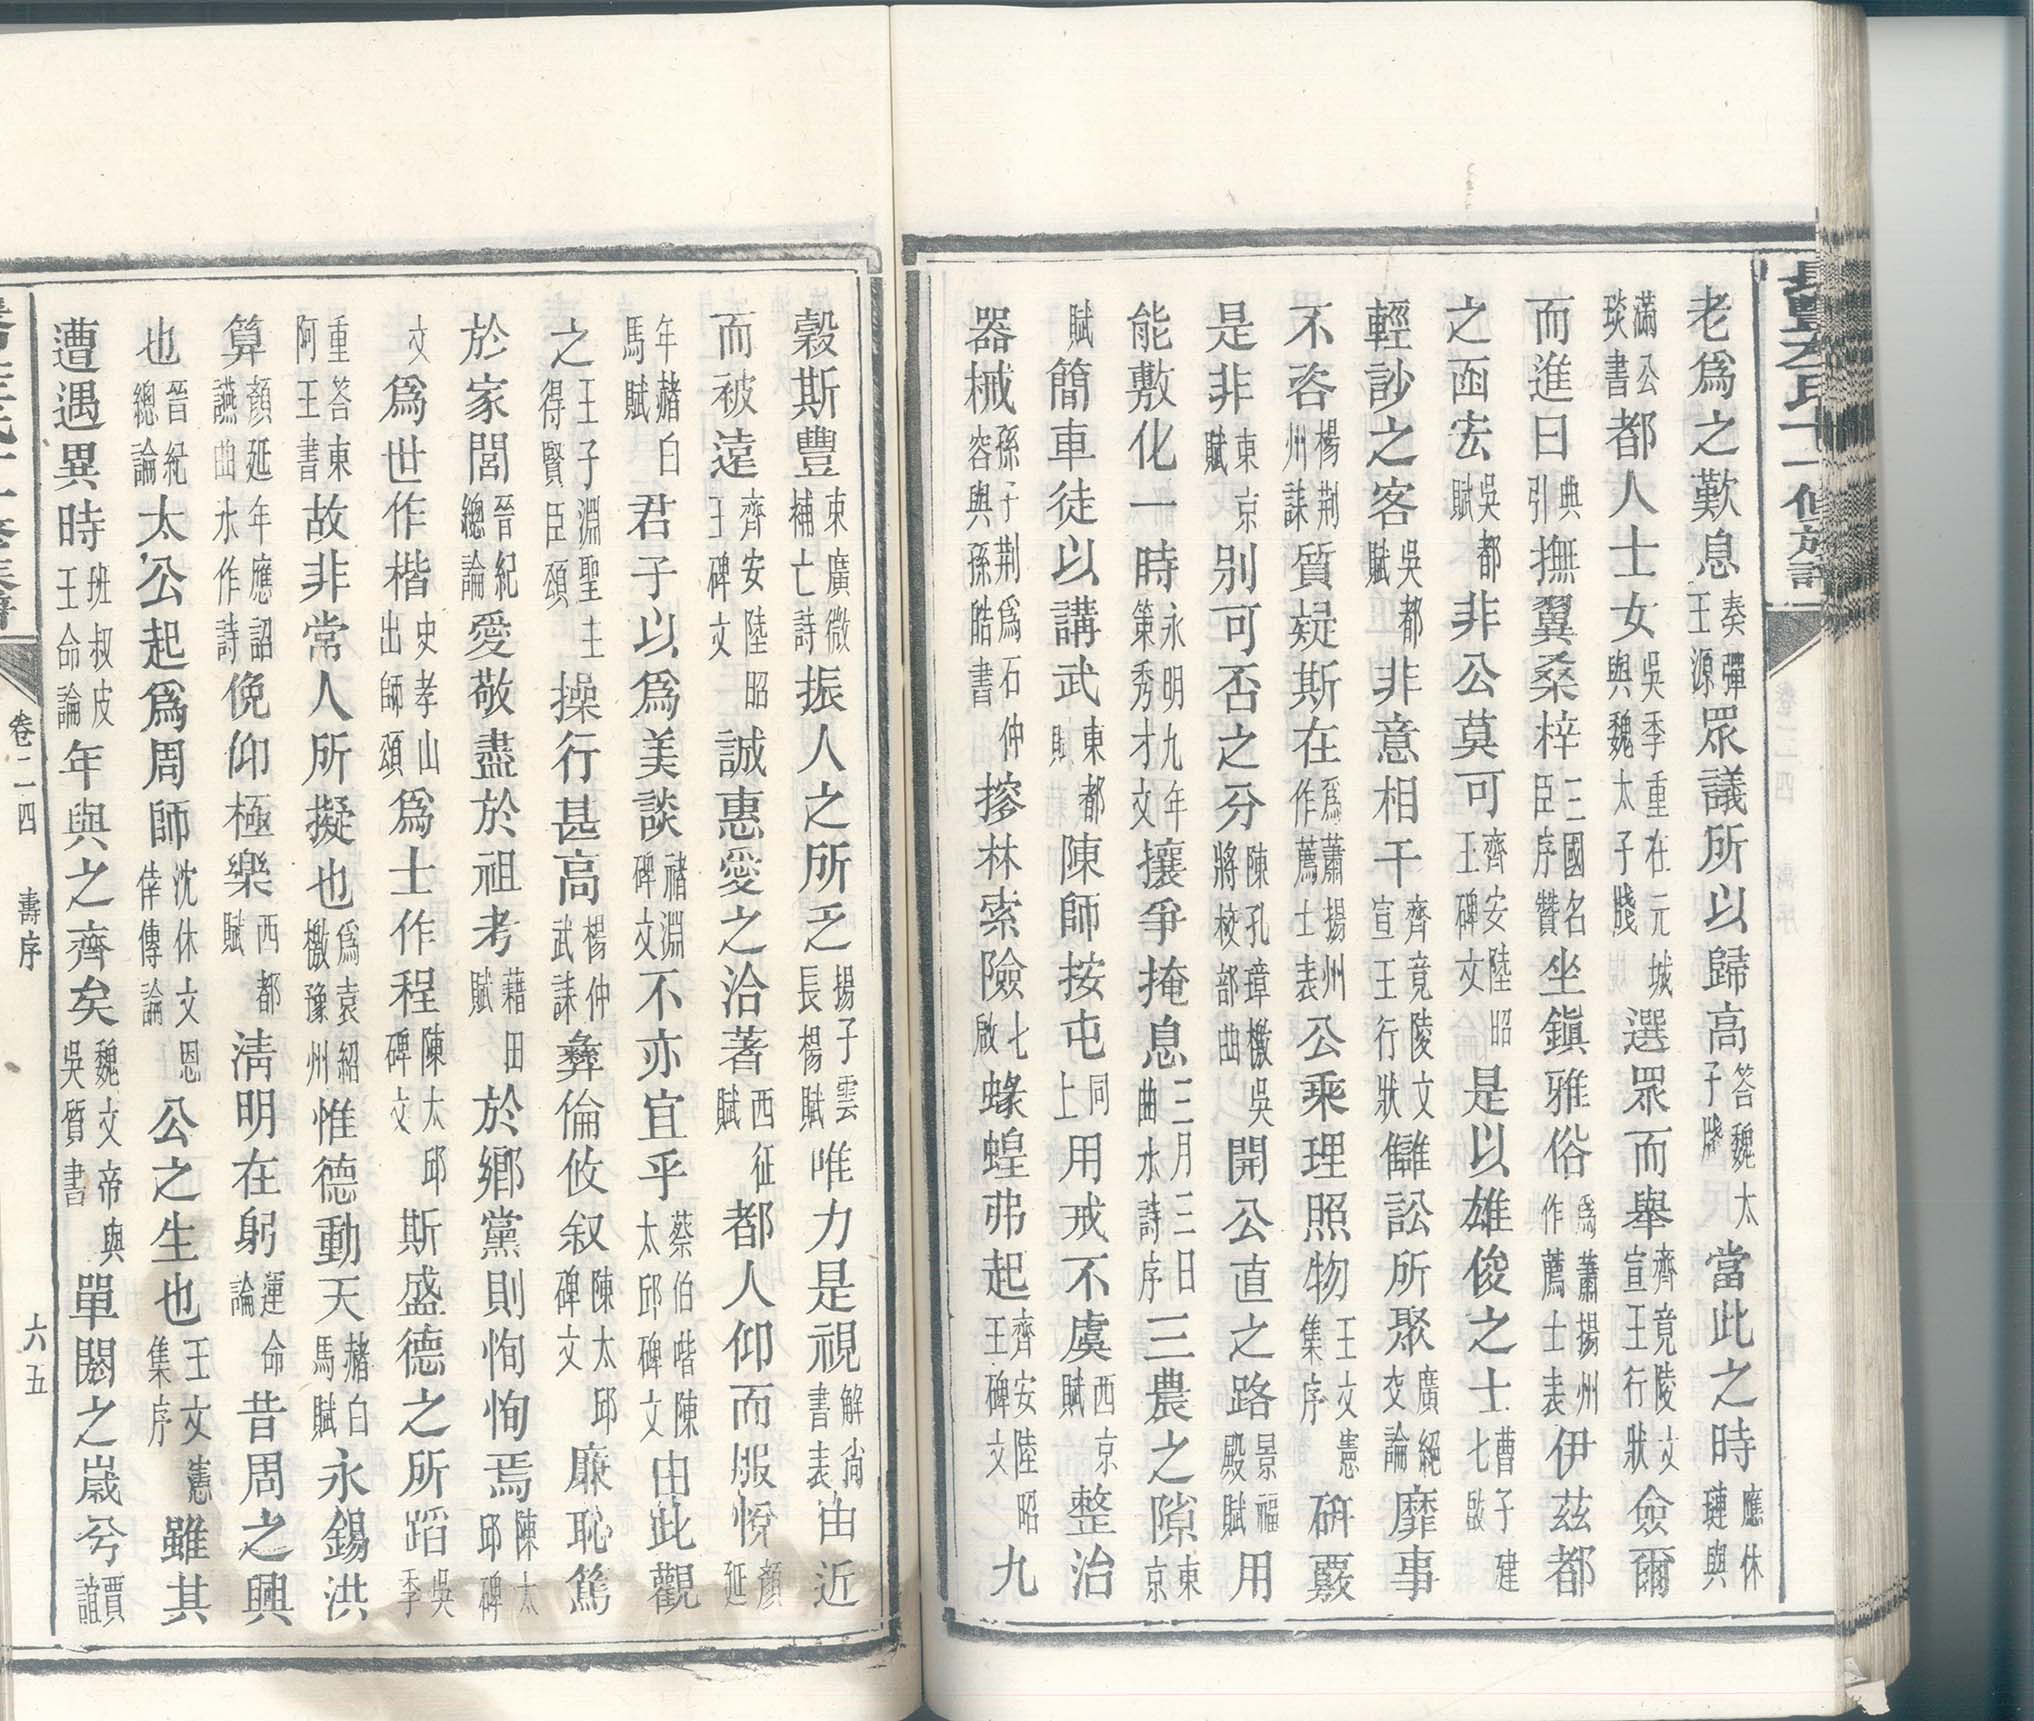 老爲之歎息奏彈王源眾議所以歸高答魏太子牋當此之時應休璉與
滿公琰書都人士女吳季重在元城與魏太子牋選眾而舉齊竟陵文宣王行狀僉爾
而進曰典引撫翼桑梓三國名臣序贊坐鎮雅俗爲蕭揚州作薦士表伊茲都
之函宏吳都賦非公莫可齊安陸昭王碑文是以雄俊之士曹子建七啟
輕訬之客吳都賦非意相干齊竟陵文宣王行狀讎訟所聚廣絕交論靡事
不咨楊荆州誄質疑斯在爲蕭揚州作薦士表公乘理照物王文憲集序硏覈
是非東京賦别可否之分陳孔璋檄吳將校部曲開公直之路景福殿賦用
能敷化一時永明九年策秀才文攘爭掩息三月三日曲水詩序三農之隙東京
賦簡車徒以講武東都賦陳師按屯同上用戒不虞西京賦整治
器械孫子荆爲石仲容與孫皓書摉林索險七啟蝝蝗弗起齊安陸昭王碑文九
穀斯豐束廣微補亡詩振人之所乏揚子雲長楊賦唯力是視解尙書表由近
而被遠齊安陸昭王碑文誠惠愛之洽著西征賦都人仰而服悅顏延
年赭白馬賦君子以爲美談褚淵碑文不亦宜乎蔡伯喈陳太邱碑文由此觀
之王子淵聖主得賢臣頌操行甚高楊仲武誄彝倫攸叙陳太邱碑文廉恥篤
於家閭晉紀總論愛敬盡於祖考藉田賦於鄉黨則恂恂焉陳太邱碑
文爲世作楷史孝山出師頌爲士作程陳太邱碑文斯盛德之所蹈吳季
重答東阿王書故非常人所擬也爲袁紹檄豫州惟德動天赭白馬賦永錫洪
算顏延年應詔讌曲水作詩俛仰極樂西都賦淸明在躬運命論昔周之興
也晉紀總論太公起爲周師沈休文恩倖傳論公之生也王文憲集序雖其
遭遇異時班叔皮王命論年與之齊矣魏文帝與吳質書單閼之歲兮賈誼
卷二四
壽序
六五